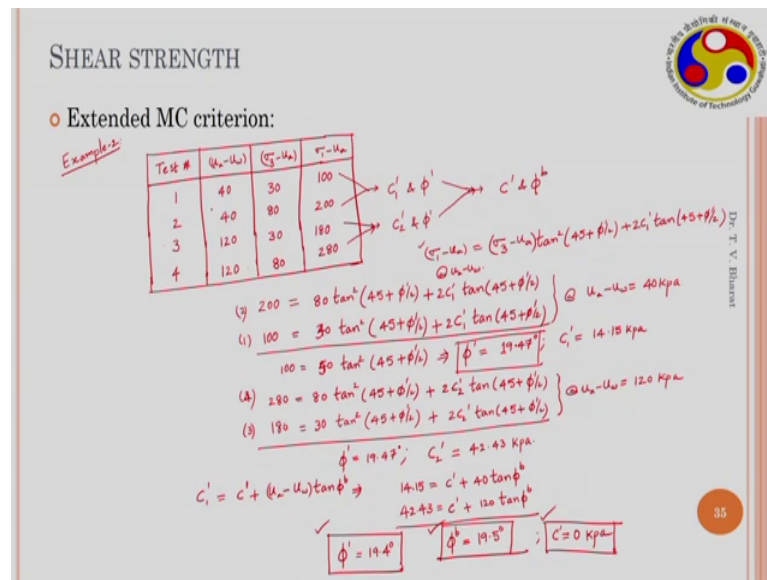 SHEAR STRENGTH
Extended MC criterion:
Example-2:
Test # (uₐ-u_w) (σ₃-uₐ) σ₁-uₐ
1 40 30 100
2 40 80 200
3 120 30 180
4 120 80 280
c₁' & φ'
c₂' & φ'
c' & φᵇ
(σ₁-uₐ) = (σ₃-uₐ)tan²(45+φ'/₂) + 2c₁' tan(45+φ'/₂)
@ uₐ-u_w.
(2) 200 = 80 tan²(45+φ'/₂) + 2c₁' tan(45+φ'/₂)
(1) 100 = 30 tan²(45+φ'/₂) + 2c₁' tan(45+φ'/₂)
@ uₐ-u_w = 40 kpa
100 = 50 tan²(45+φ'/₂) ⇒ φ' = 19.47° ; c₁' = 14.15 kpa
(4) 280 = 80 tan²(45+φ'/₂) + 2c₂' tan(45+φ'/₂)
(3) 180 = 30 tan²(45+φ'/₂) + 2c₂' tan(45+φ'/₂)
@ uₐ-u_w = 120 kpa
φ' = 19.47° ; c₂' = 42.43 kpa.
c₁' = c' + (uₐ-u_w)tanφᵇ ⇒ 14.15 = c' + 40 tanφᵇ
42.43 = c' + 120 tanφᵇ
φ' = 19.4° φᵇ = 19.5° ; c' = 0 kpa
Dr. T. V. Bharat
35
Indian Institute of Technology Guwahati